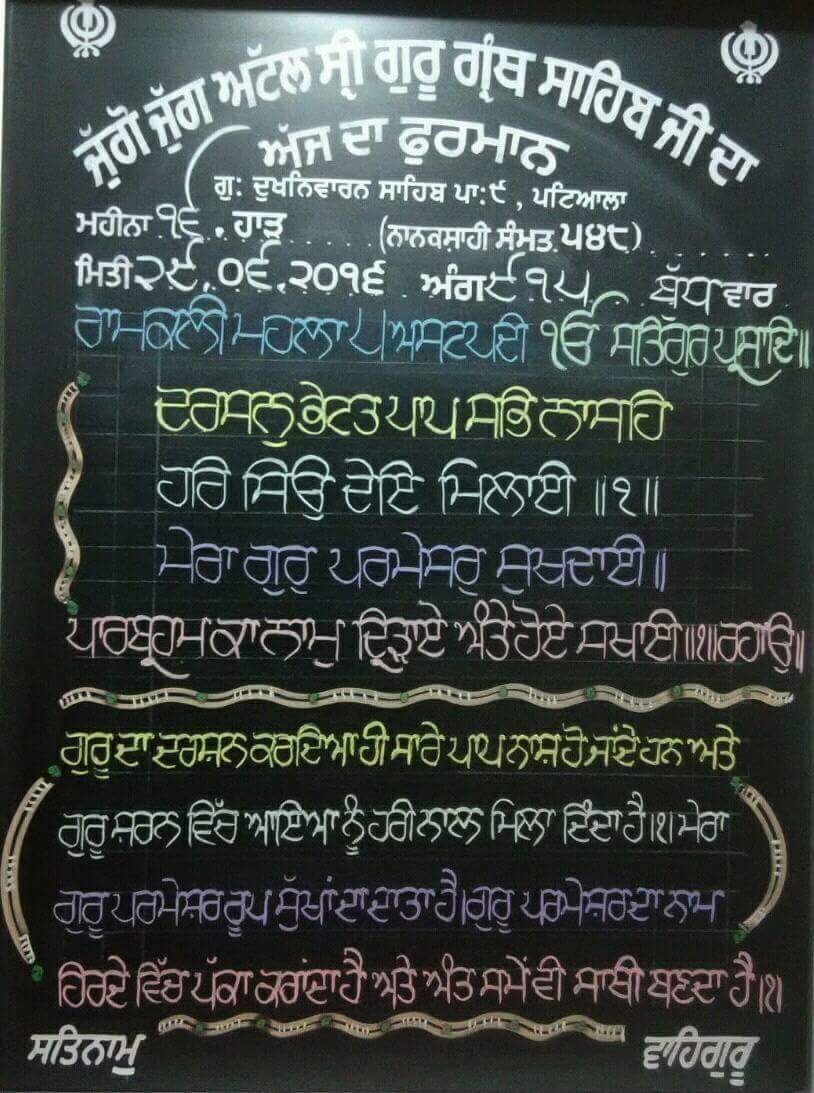 ਜੁੱਗੋ ਜੁੱਗ ਅਟੱਲ ਸ੍ਰੀ ਗੁਰੂ ਗ੍ਰੰਥ ਸਾਹਿਬ ਜੀ ਦਾ
ਅੱਜ ਦਾ ਫੁਰਮਾਨ
ਗੁ: ਦੁਖਨਿਵਾਰਨ ਸਾਹਿਬ ਪਾ:੯, ਪਟਿਆਲਾ
ਮਹੀਨਾ ੧੬. ਹਾੜ (ਨਾਨਕਸ਼ਾਹੀ ਸੰਮਤ ੫੪੮)
ਮਿਤੀ ੨੯.੦੬.੨੦੧੬ ਅੰਗ ੯੧੫ ਬੁੱਧਵਾਰ
ਰਾਮਕਲੀ ਮਹਲਾ ੫ ਅਸਟਪਦੀ ੴ ਸਤਿਗੁਰ ਪ੍ਰਸਾਦਿ॥
ਦਰਸਨੁ ਭੇਟਤ ਪਾਪ ਸਭਿ ਨਾਸਹਿ
ਹਰਿ ਸਿਉ ਦੇਇ ਮਿਲਾਈ ॥੧॥
ਮੇਰਾ ਗੁਰੁ ਪਰਮੇਸਰੁ ਸੁਖਦਾਈ॥
ਪਾਰਬ੍ਰਹਮ ਕਾ ਨਾਮੁ ਦ੍ਰਿੜਾਏ ਅੰਤੇ ਹੋਏ ਸਖਾਈ॥੧॥ਰਹਾਉ॥
ਗੁਰੂ ਦਾ ਦਰਸ਼ਨ ਕਰਦਿਆ ਹੀ ਸਾਰੇ ਪਾਪ ਨਾਸ਼ ਹੋ ਜਾਂਦੇ ਹਨ ਅਤੇ
ਗੁਰੂ ਸ਼ਰਨ ਵਿੱਚ ਆਇਆ ਨੂੰ ਹਰੀ ਨਾਲ ਮਿਲਾ ਦਿੰਦਾ ਹੈ।੧। ਮੇਰਾ
ਗੁਰੂ ਪਰਮੇਸ਼ਰ ਰੂਪ ਸੁੱਖਾਂ ਦਾ ਦਾਤਾ ਹੈ।ਗੁਰੂ ਪਰਮੇਸ਼ਰ ਦਾ ਨਾਮ
ਹਿਰਦੇ ਵਿੱਚ ਪੱਕਾ ਕਰਾਂਦਾ ਹੈ ਅਤੇ ਅੰਤ ਸਮੇਂ ਵੀ ਸਾਥੀ ਬਣਦਾ ਹੈ।੧।
ਸਤਿਨਾਮੁ ਵਾਹਿਗੁਰੂ